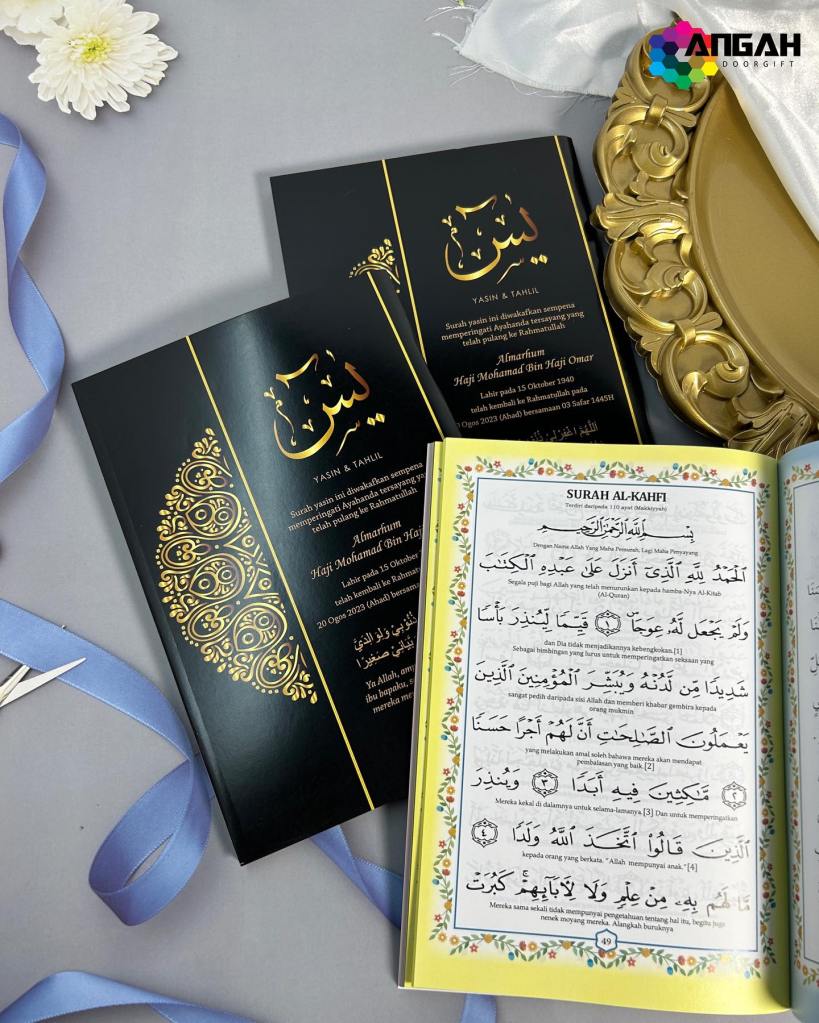 ANGAH
DOORGIFT
يس
YASIN & TAHLIL
Surah yasin ini diwakafkan sempena
memperingati Ayahanda tersayang yang
telah pulang ke Rahmatullah
Almarhum
Haji Mohamad Bin Haji Omar
Lahir pada 15 Oktober 1940
telah kembali ke Rahmatullah pada
Ogos 2023 (Ahad) bersamaan 03 Safar 1445H
يس
YASIN & TAHLIL
Surah yasin ini diwakafkan sempena
memperingati Ayahanda tersayang
telah pulang ke Rahmatullah
Almarhum
Haji Mohamad Bin Haj
Lahir pada 15 Oktober
telah kembali ke Rahmat
20 Ogos 2023 (Ahad) bersam
Ya Allah, am
ibu bapaku, s
mereka me
SURAH AL-KAHFI
Terdiri daripada 110 ayat (Makkiyyah)
بِسْمِ اللَّهِ الرَّحْمَٰنِ الرَّحِيمِ
Dengan Nama Allah Yang Maha Pemurah, Lagi Maha Penyayang
الْحَمْدُ لِلَّهِ الَّذِي أَنْزَلَ عَلَىٰ عَبْدِهِ الْكِتَابَ
Segala puji bagi Allah yang telah menurunkan kepada hamba-Nya Al-Kitab
(Al-Quran)
وَلَمْ يَجْعَلْ لَهُ عِوَجًا ۜ ١ قَيِّمًا لِيُنْذِرَ بَأْسًا
dan Dia tidak menjadikannya kebengkokan.[1]
Sebagai bimbingan yang lurus untuk memperingatkan seksaan yang
شَدِيدًا مِنْ لَدُنْهُ وَيُبَشِّرَ الْمُؤْمِنِينَ الَّذِينَ
sangat pedih daripada sisi Allah dan memberi khabar gembira kepada
orang mukmin
يَعْمَلُونَ الصَّالِحَاتِ أَنَّ لَهُمْ أَجْرًا حَسَنًا
yang melakukan amal soleh bahawa mereka akan mendapat
pembalasan yang baik.[2]
٢ مَاكِثِينَ فِيهِ أَبَدًا ٣ وَيُنْذِرَ
Mereka kekal di dalamnya untuk selama-lamanya.[3] Dan untuk memperingatkan
الَّذِينَ قَالُوا اتَّخَذَ اللَّهُ وَلَدًا ٤
kepada orang yang berkata. "Allah mempunyai anak."[4]
مَا لَهُمْ بِهِ مِنْ عِلْمٍ وَلَا لِآبَائِهِمْ ۚ كَبُرَتْ
Mereka sama sekali tidak mempunyai pengetahuan tentang hal itu, begitu juga
nenek moyang mereka. Alangkah buruknya
49